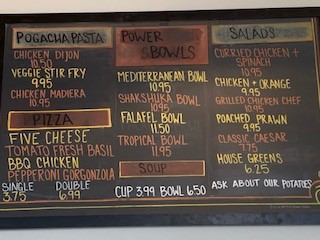 POGACHAPASTA
CHICKEN DIJON
10.50
VEGGIE STIR FRY
9.95
CHICKEN MADIERA
10.95
PIZZA
FIVE CHEESE
TOMATO FRESH BASIL
BBQ CHICKEN
PEPPERONI GORGONZOLA
SINGLE DOUBLE
3.75 6.99
POWER
BOWLS
MEDITERRANEAN BOWL
9.95
SHAKSHUKA BOWL
10.95
FALAFEL BOWL
11.50
TROPICAL BOWL
11.95
SOUP
CUP 3.99 BOWL 6.50
SALADS
CURRIED CHICKEN +
SPINACH
10.95
CHICKEN + ORANGE
9.95
GRILLED CHICKEN CHEF
10.95
POACHED PRAWN
9.95
CLASSIC CAESAR
7.75
HOUSE GREENS
6.25
ASK ABOUT OUR POTATOES